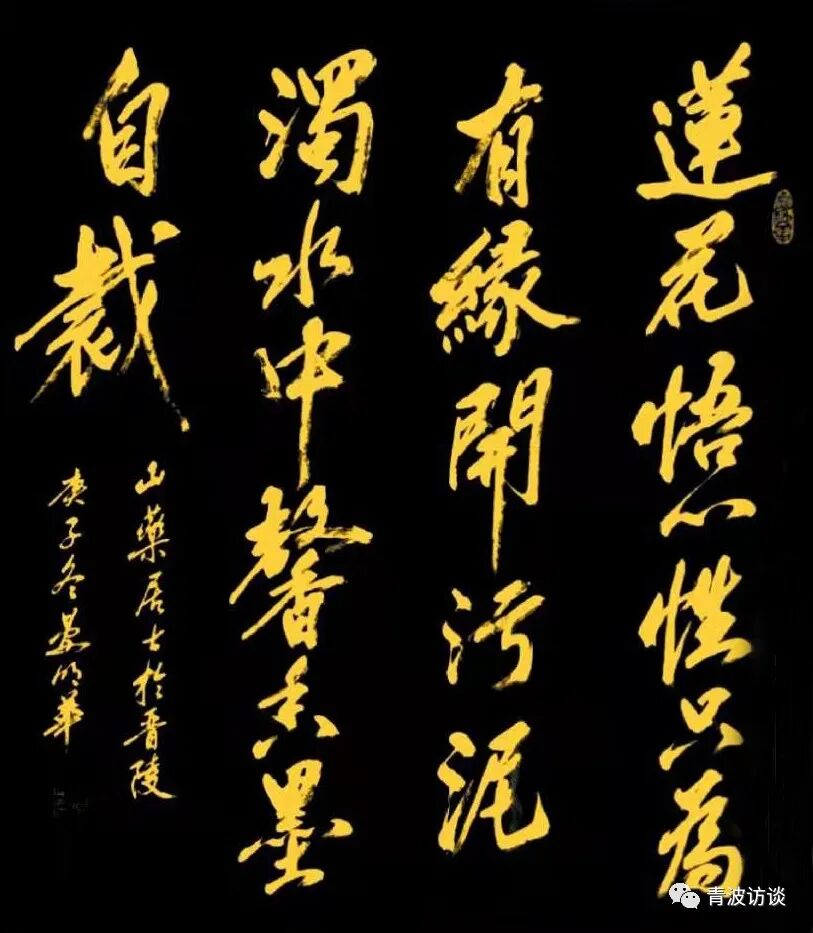 蓮花悟心性只為
有緣開污泥
濁水中馨香墨
自裁
山藥居士於晋陵
庚子冬明華
青波访谈